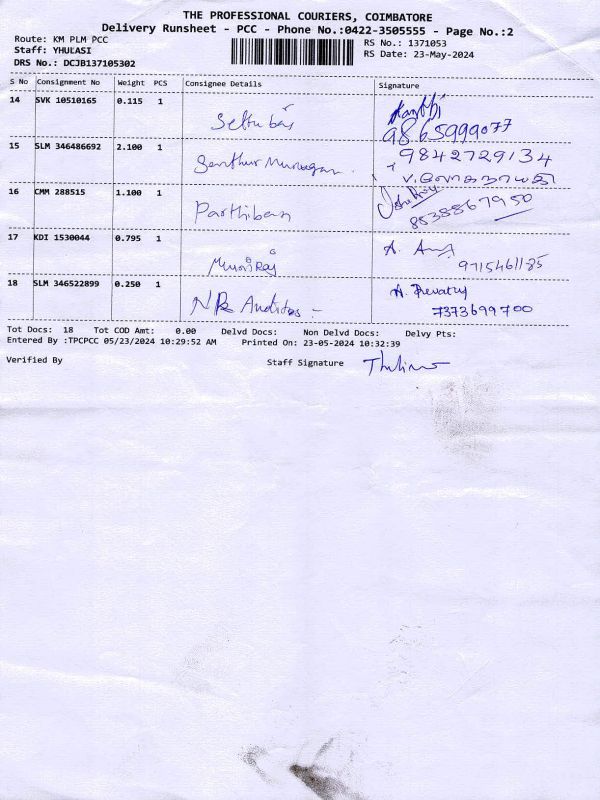 THE PROFESSIONAL COURIERS, COIMBATORE
Delivery Runsheet - PCC - Phone No.:0422-3505555 - Page No.:2
Route: KM PLM PCC
RS No.: 1371053
Staff: YHULASI
RS Date: 23-May-2024
DRS No.: DCJB137105302
S No Consignment No Weight PCS Consignee Details Signature
14 SVK 10510165 0.115 1
9865999077
15 SLM 346486692 2.100 1 Senthur Murugan 9842729134
16 CMM 288515 1.100 1 Parthiban
8838867950
17 KDI 1530044 0.795 1 Muniraj
9715461185
18 SLM 346522899 0.250 1 Auditos A. Revathy
7373699700
Tot Docs: 18 Tot COD Amt: 0.00 Delvd Docs: Non Delvd Docs: Delvy Pts:
Entered By :TPCPCC 05/23/2024 10:29:52 AM Printed On: 23-05-2024 10:32:39
Verified By Staff Signature